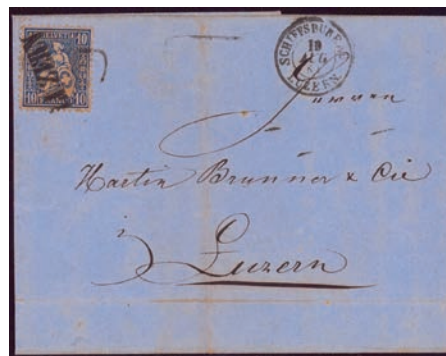 HELVETIA
10 10
10 FRANCO 10
SCHIFFSBUREAU
19
LUZERN.
Herren
Martin Brunner & Cie
in
Luzern